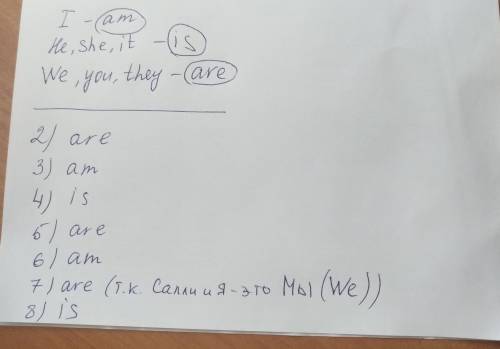 I - am
He, she, it - is
We, you, they - are
2) are
3) am
4) is
5) are
6) am
7) are (т.к. Салли и я - это Мы (We))
8) is